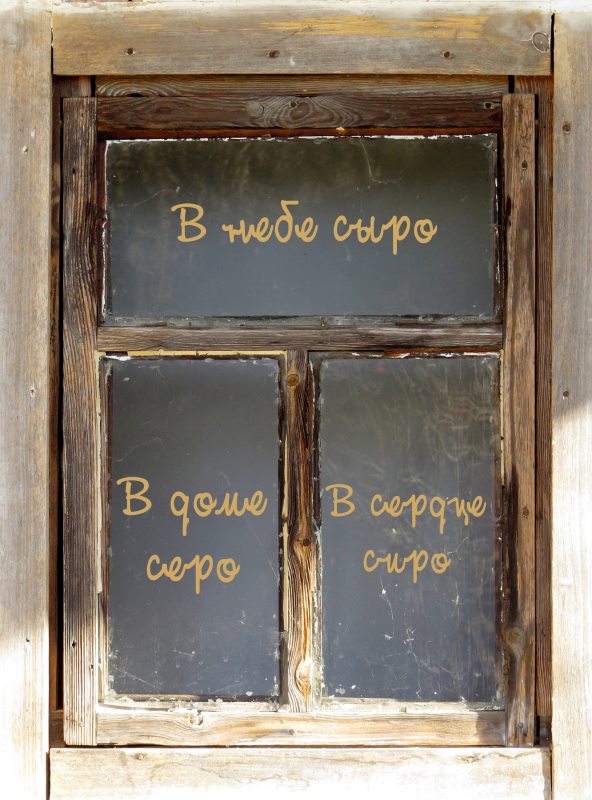 В небе сыро
В доме
серо
В сердце
сиро